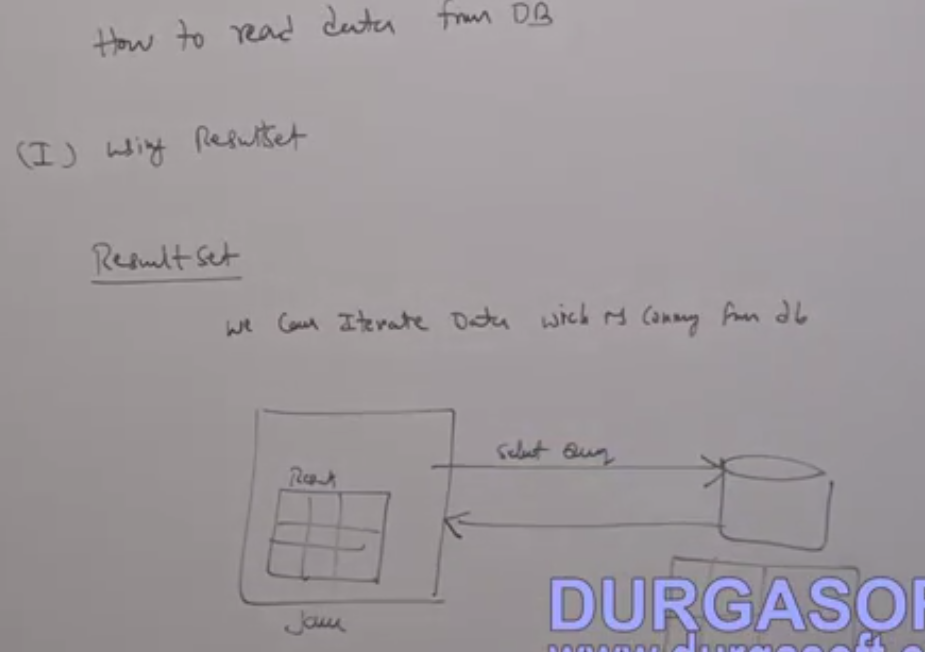 How to read data from DB
(I) using ResultSet
ResultSet
we can Iterate Data wich is coming from db
Select Query
Result
Java
DURGASOF
www.durgasoft.c